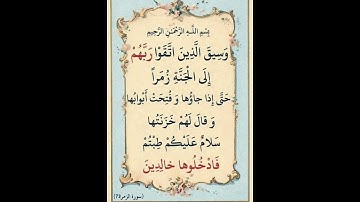 بِسْمِ اللَّهِ الرَّحْمَنِ الرَّحِيمِ
وَسِيقَ الَّذِينَ اتَّقَوْا رَبَّهُمْ
إِلَى الْجَنَّةِ زُمَراً
حَتَّى إِذا جاؤُها وَ فُتِحَتْ أَبْوابُها
وَ قالَ لَهُمْ خَزَنَتُها
سَلامٌ عَلَيْكُمْ طِبْتُمْ
فَادْخُلُوها خالِدِينَ
(سورة الزمر73)